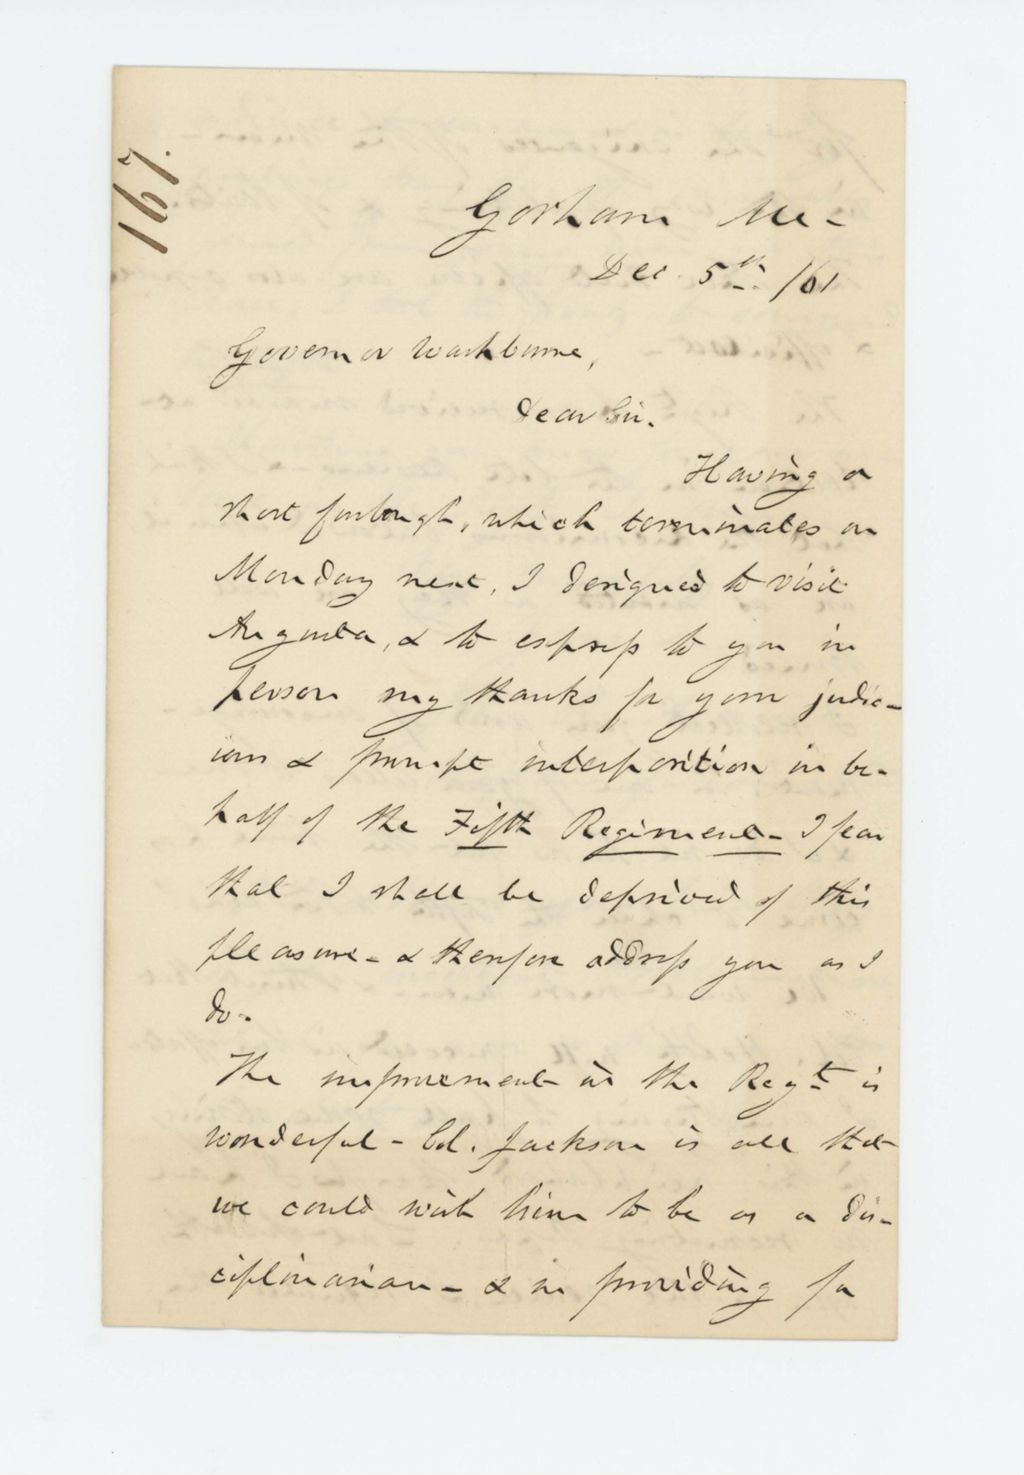 167.
Gorham Me-
Dec. 5th /61
Governor Washburne,
Dear Sir.
Having a
short furlough, which terminates on
Monday next, I designed to visit
Augusta, & to express to you in
person my thanks for your judic-
ious & prompt interposition in be-
half of the Fifth Regiment - I fear
that I shall be deprived of this
pleasure - & therefore address you as I
do -
The improvement in the Regt is
wonderful - Col. Jackson is all that
we could wish him to be as a dis-
ciplinarian - & in providing for